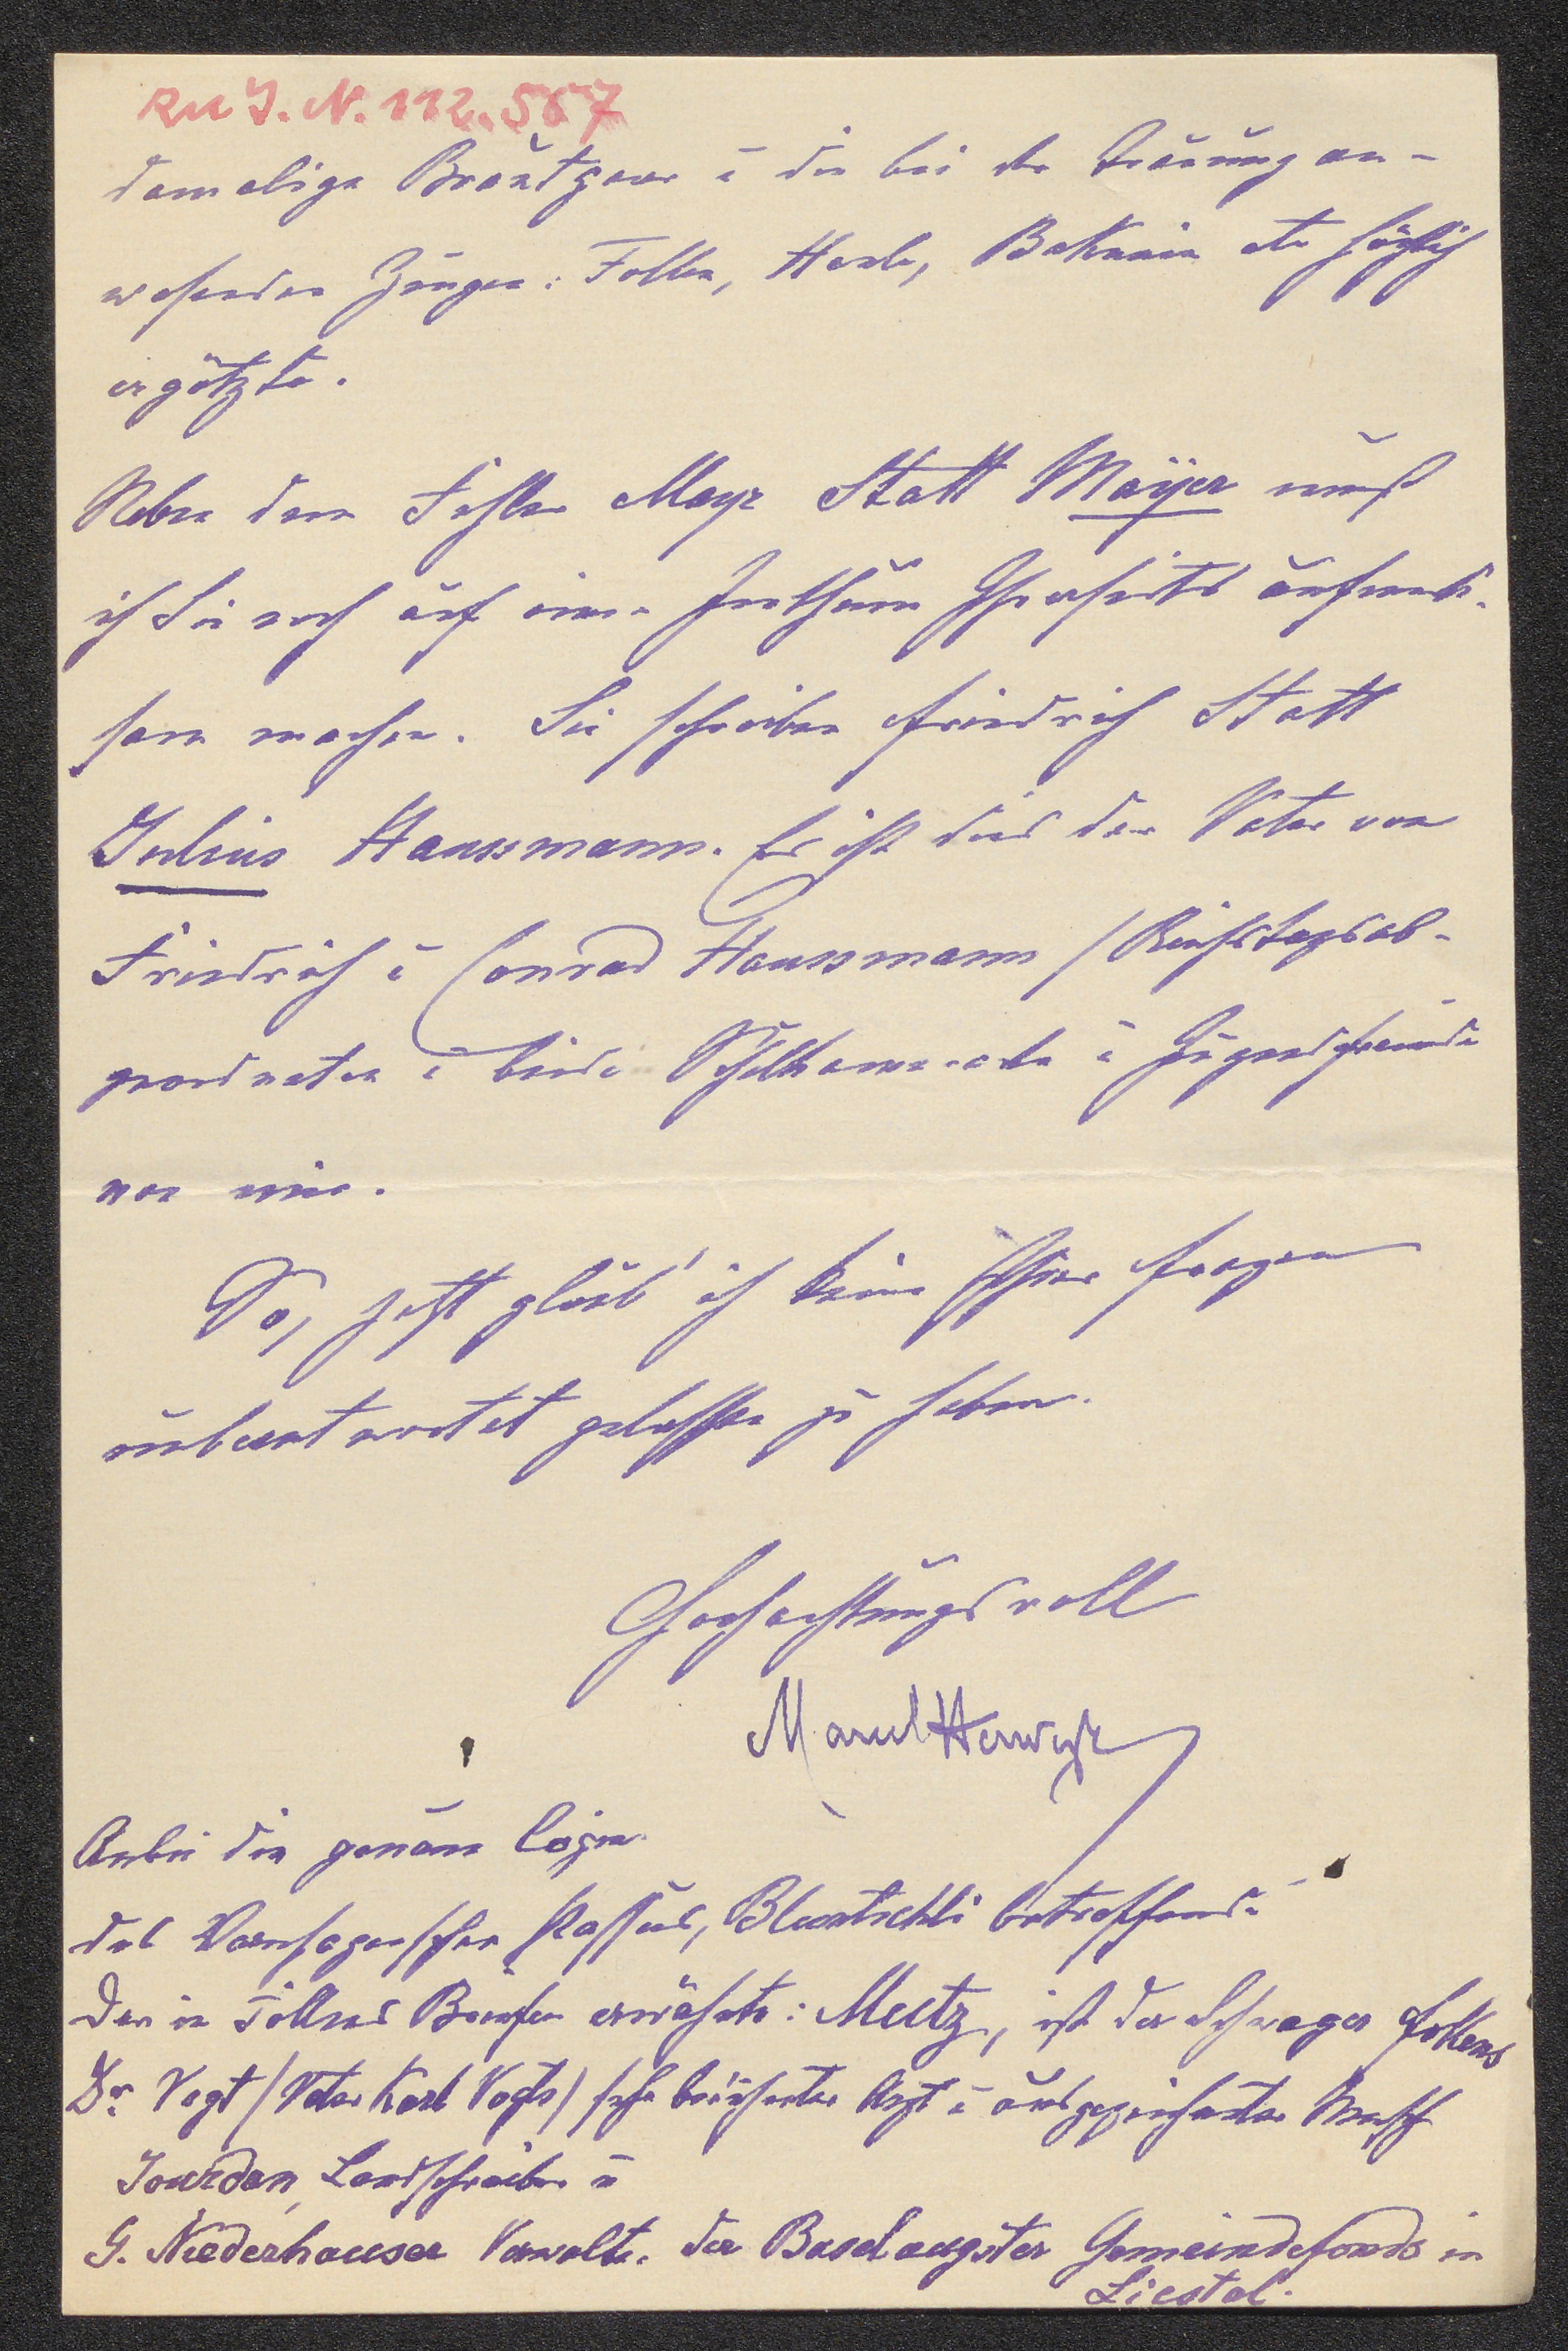 zu I.N. 112.567
damalige Brautpaar u die bei der Trauung an-
wesenden Zeugen: Follen, Henle, Bakunin etc höchlich
ergötzte.
Neben dem Fehler Mayr Statt Mayer muß
ich Sie noch auf einen Irrthum Ihrerseits aufmerk-
sam machen. Sie schreiben Friedrich Statt
Julius Haussmann. Es ist dies der Vater von
Friedrich u Conrad Haussmann / Reichstagsab-
geordneten u beide Schulkamerade u Jugendfreunde
von mir.
So, jetzt glaub' ich keine Ihrer Fragen
unbeantwortet gelassen zu haben.
Hochachtungsvoll
Marcel Herwegh
Anbei die genaue Copie
des Varnhagenschen Passus, Bluntschli betreffend.
Der in Follens Briefen erwähnte: Meetz, ist der Schwager Follens
Dr. Vogt / Vater Karl Vogts / sehr berühmter Arzt u ausgezeichneter Mensch
Jourdan, Landschreiber u
G. Niederhauser Verwalter der Baselaugster Gemeindefonds in
Liestal.